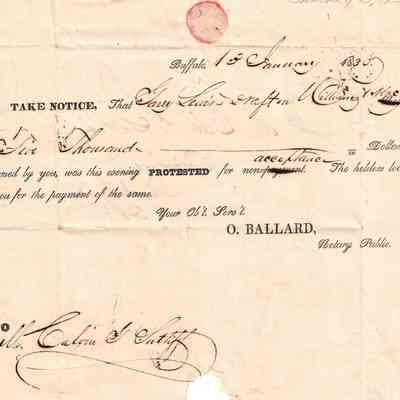 Buffalo, 15 January 1835.
TAKE NOTICE, That Lewis Draft on
Five Thousand Dollar
by you, was this evening PROTESTED for nonpayment. acceptance The holders loo
you for the payment of the same.
Your Ob't. Serv't.
O. BALLARD,
Notary Public.
Mr. Calvin T.